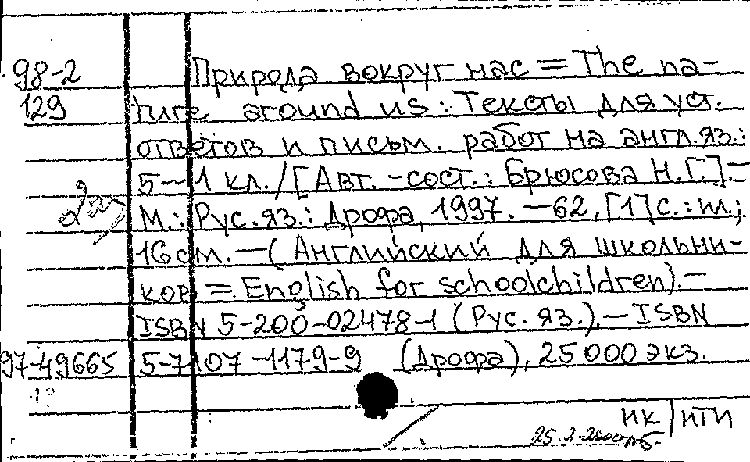 98-2 Природа вокруг нас = The na-
129 ture around us: Тексты для уст.
ответов и письм. работ на англ. яз.:
5-11 кл. / [Авт.-сост.: Брюсова Н.Г.].-
М.: Рус. яз.: Дрофа, 1997. - 62, [1] с.: ил.;
16 см. - (Английский для школьни-
ков = English for schoolchildren). -
ISBN 5-200-02478-1 (Рус. яз.). - ISBN
97-49665 5-7107-1179-9 (Дрофа), 25000 экз.
НК / НТИ